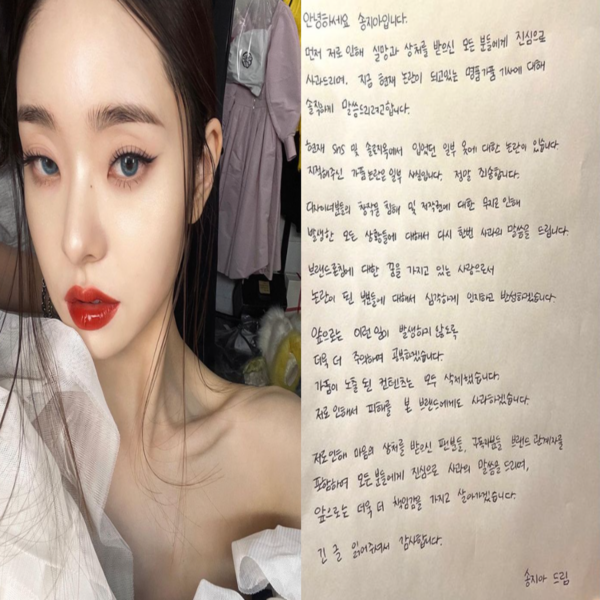 안녕하세요 송지아입니다.
먼저 저로 인해 실망과 상처를 받으신 모든 분들에게 진심으로
사과드리며, 지금 현재 논란이 되고있는 명품가품 기사에 대해
솔직하게 말씀드리려고합니다.
현재 SNS 및 솔로지옥에서 입었던 일부 옷에 대한 논란이 있습니다
지적해주신 가품논란은 일부 사실입니다. 정말 죄송합니다.
디자이너분들의 창작물 침해 및 저작권에 대한 무지로 인해
발생한 모든 상황들에 대해서 다시 한번 사과의 말씀을 드립니다.
브랜드론칭에 대한 꿈을 가지고 있는 사람으로서
논란이 된 부분들에 대해서 심각하게 인지하고 반성하겠습니다.
앞으로는 이런일이 발생하지 않도록
더욱 더 주의하며 공부하겠습니다.
가품이 노출 된 컨텐츠는 모두 삭제했습니다.
저로 인해서 피해를 본 브랜드에게도 사과하겠습니다.
저로인해 마음의 상처를 받으신 팬분들, 구독자분들 브랜드 관계자를
포함하여 모든분들에게 진심으로 사과의 말씀을 드리며,
앞으로는 더욱 더 책임감을 가지고 살아가겠습니다.
긴 글 읽어주셔서 감사합니다.
송지아 드림